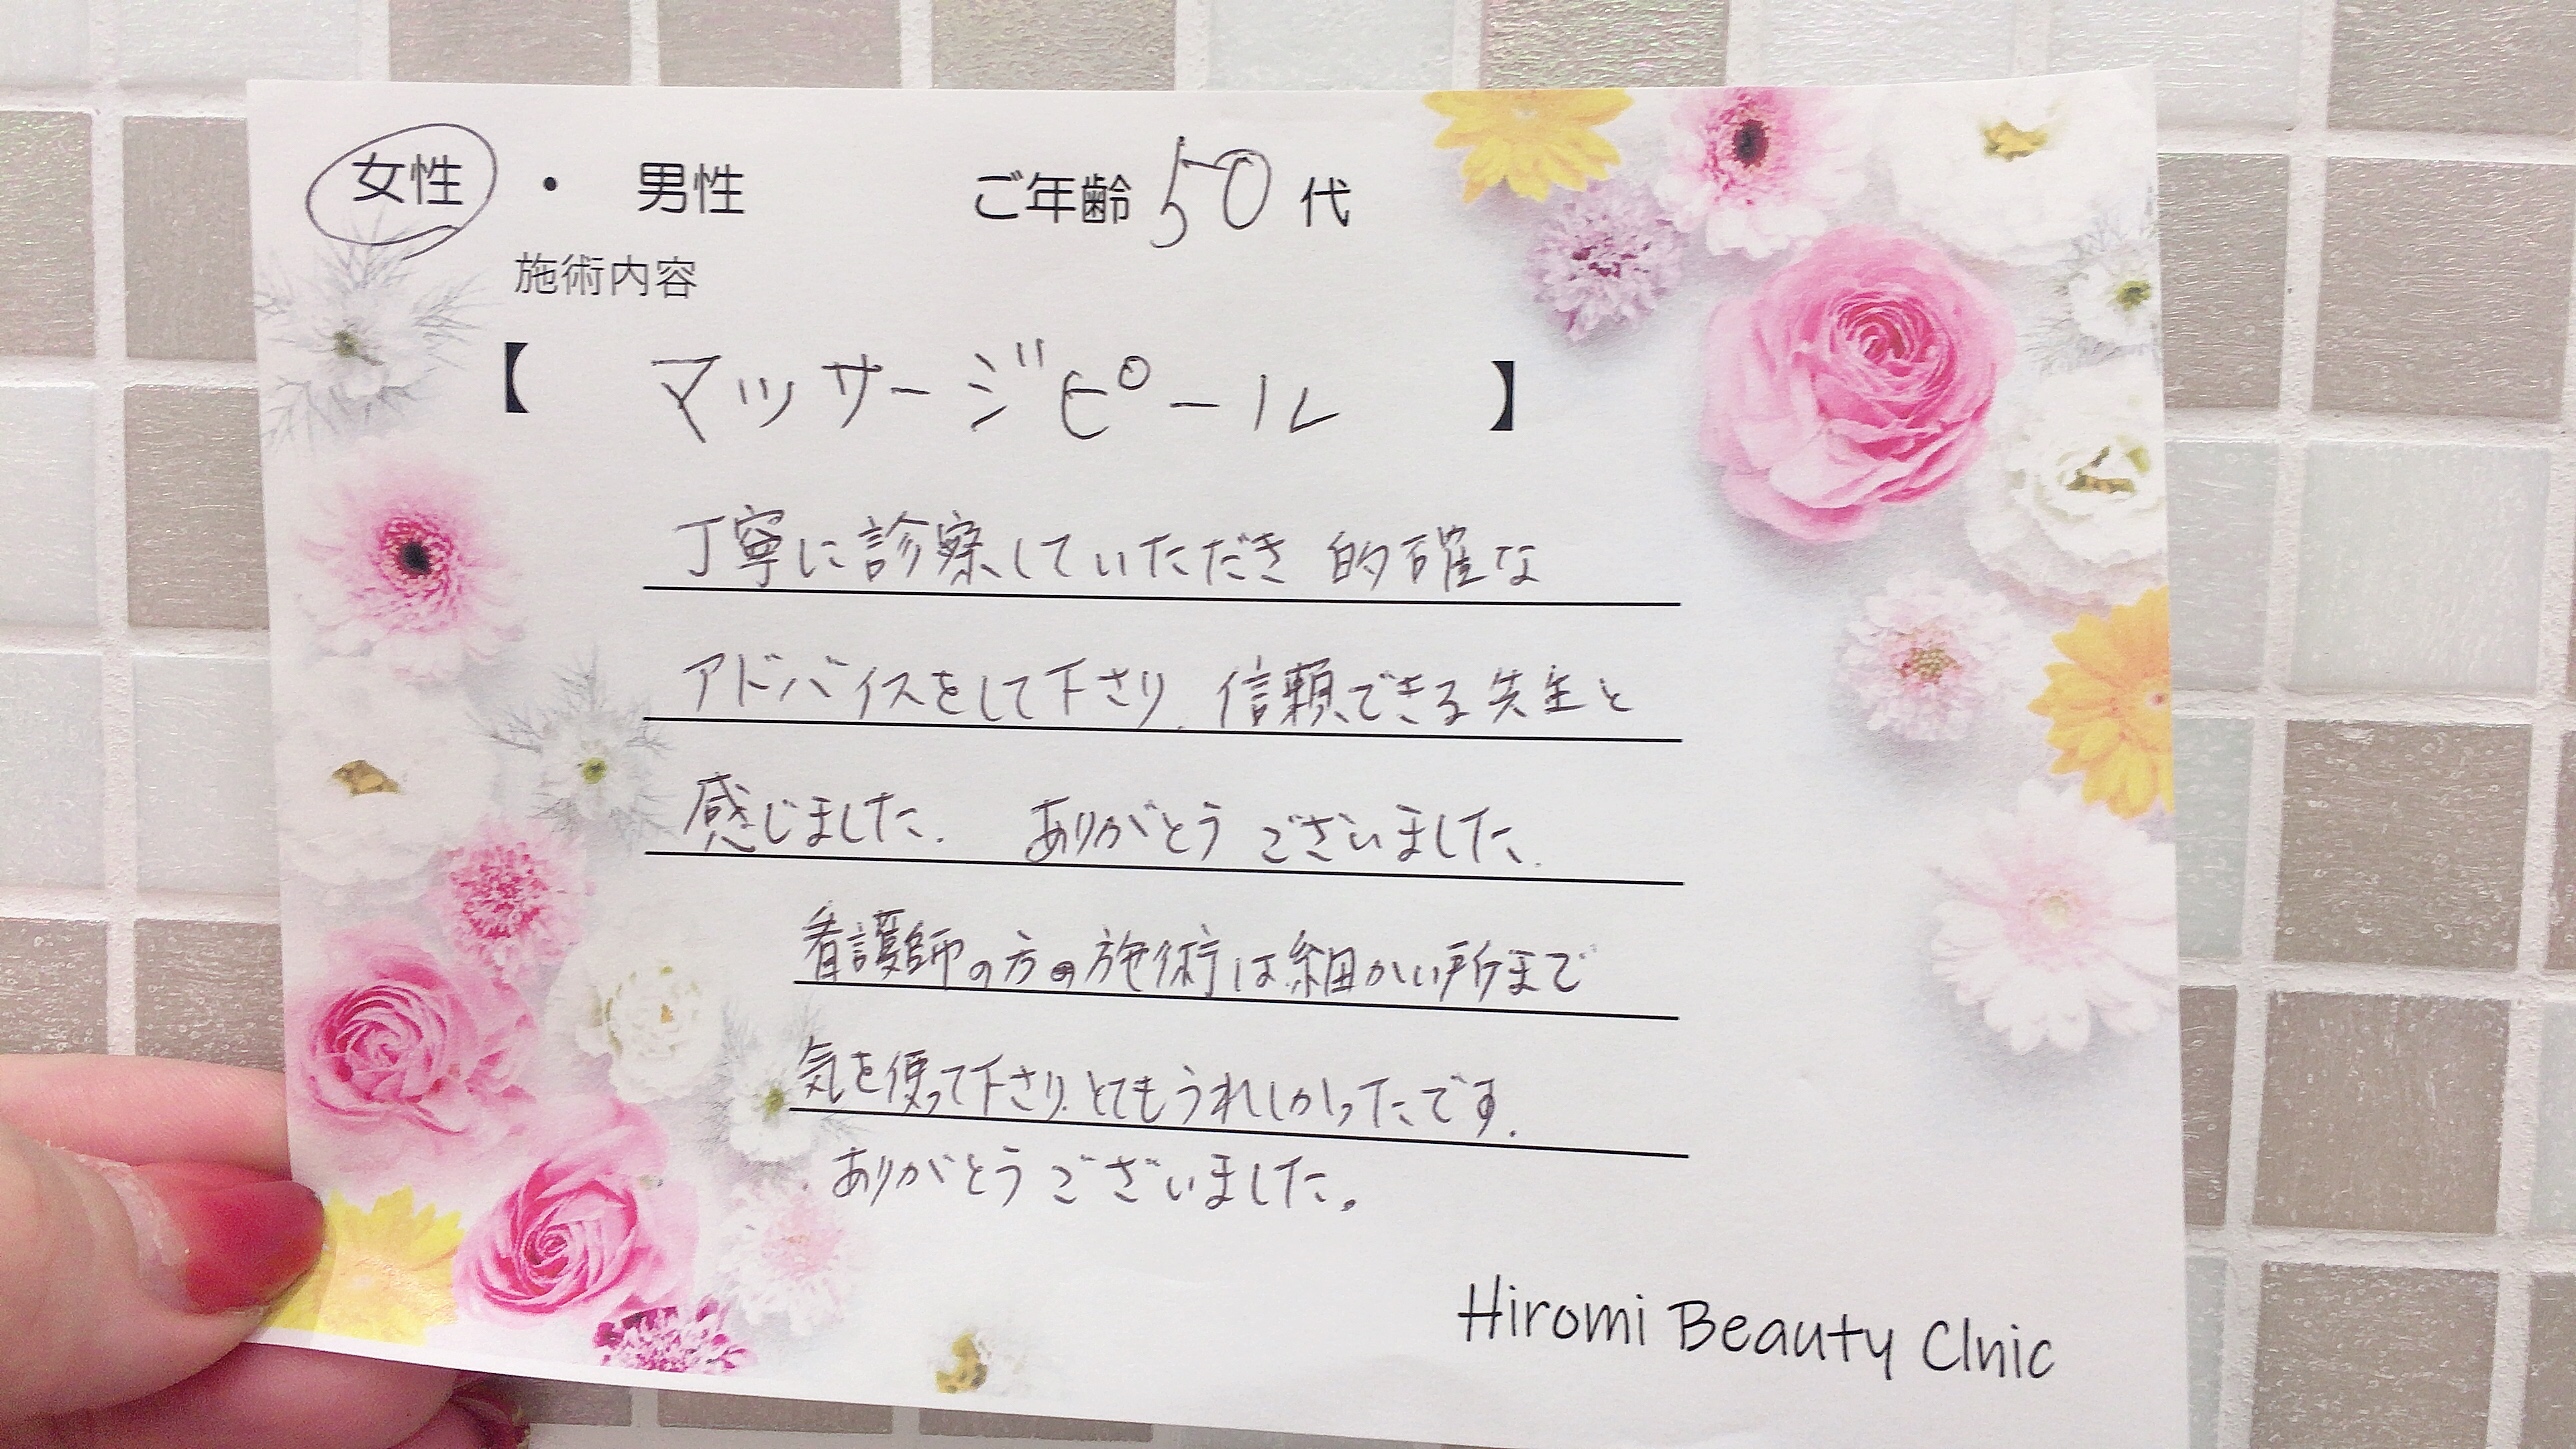 女性 ・ 男性 ご年齢 50 代
施術内容
【 マッサージピール 】
丁寧に診察していただき 的確な
アドバイスをして下さり、信頼できる先生と
感じました. ありがとうございました.
看護師の方の施術は細かい所まで
気を使って下さり、とてもうれしかったです.
ありがとうございました。
Hiromi Beauty Clnic